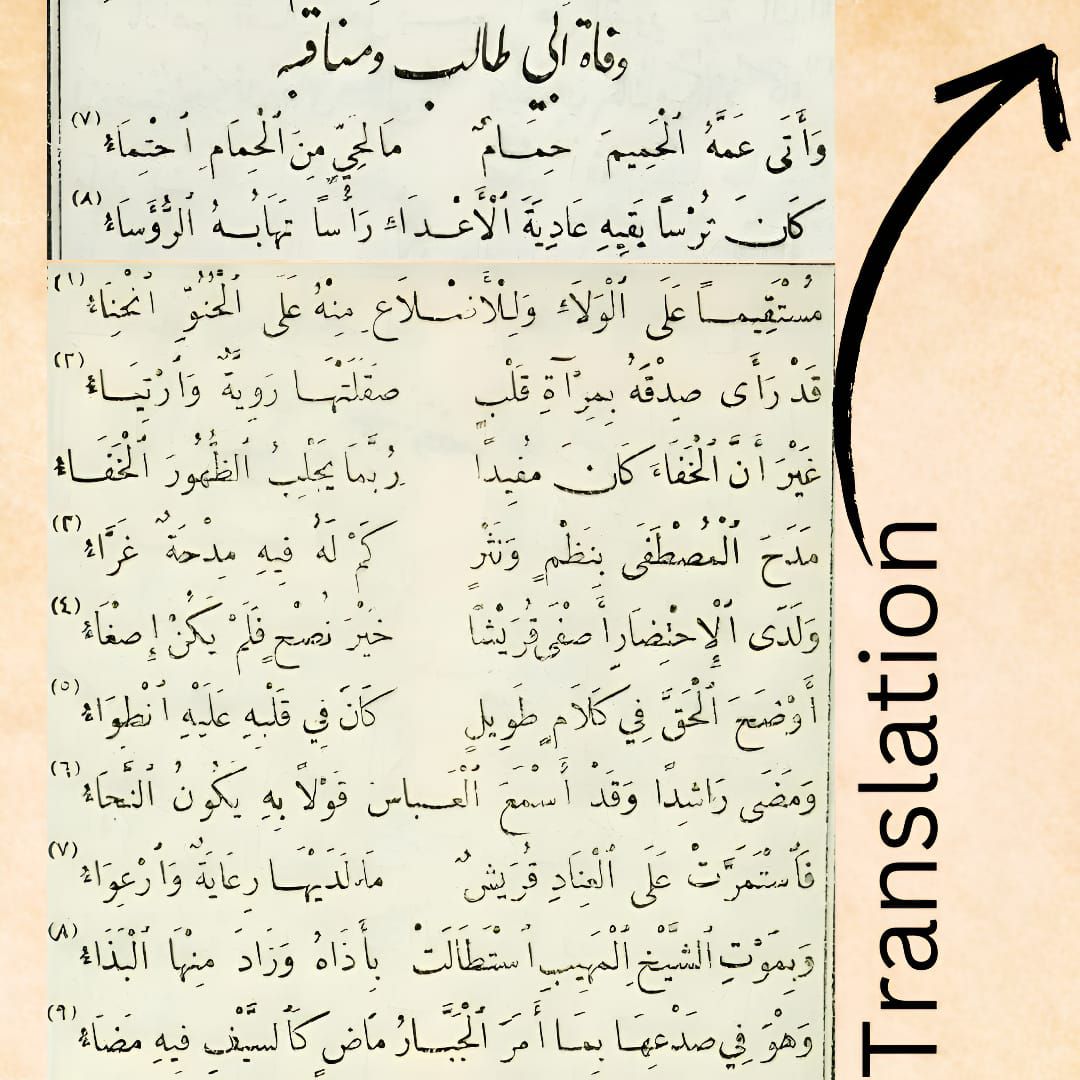 وفاة أبي طالب ومناقبه
وَأَتَى عَمَّهُ ٱلْحَمِيمَ حِمَامٌ مَا لِحَيٍّ مِنَ ٱلْحِمَامِ ٱحْتِمَاءُ (٧)
كَانَ تُرْسًا يَقِيهِ عَادِيَةَ ٱلْأَعْدَاءِ رَأْسًا تَهَابُهُ ٱلرُّؤَسَاءُ (٨)
مُسْتَقِيمًا عَلَى ٱلْوَلَاءِ وَلِلْأَضْلَاعِ مِنْهُ عَلَى ٱلْحُنُوِّ ٱنْحِنَاءُ (١)
قَدْ رَأَى صِدْقَهُ بِمِرْآةِ قَلْبٍ صَقَلَتْهَا رَوِيَّةٌ وَٱرْتِيَاءُ (٢)
غَيْرَ أَنَّ ٱلْخَفَاءَ كَانَ مُفِيدًا رُبَّمَا يَجْلِبُ ٱلظُّهُورَ ٱلْخَفَاءُ
مَدَحَ ٱلْمُصْطَفَى بِنَظْمٍ وَنَثْرٍ كَمْ لَهُ فِيهِ مِدْحَةٌ غَرَّاءُ (٣)
وَلَدَى ٱلْإِحْتِضَارِ أَصْفَى قُرَيْشًا خَيْرَ نُصْحٍ فَلَمْ يَكُنْ إِصْغَاءُ (٤)
أَوْضَحَ ٱلْحَقَّ فِي كَلَامٍ طَوِيلٍ كَانَ فِي قَلْبِهِ عَلَيْهِ ٱنْطِوَاءُ (٥)
وَمَضَى رَاشِدًا وَقَدْ أَسْمَعَ ٱلْعَبَّاسَ قَوْلًا بِهِ يَكُونُ ٱلنَّجَاءُ (٦)
فَٱسْتَمَرَّتْ عَلَى ٱلْعِنَادِ قُرَيْشٌ مَا لَدَيْهَا رِعَايَةٌ وَٱرْعِوَاءُ (٧)
وَبِمَوْتِ ٱلشَّيْخِ ٱلْمَهِيبِ ٱسْتَطَالَتْ بِأَذَاهُ وَزَادَ مِنْهَا ٱلْبَذَاءُ (٨)
وَهْوَ فِي صَدْعِهَا بِمَا أَمَرَ ٱلْجَبَّارُ مَاضٍ كَٱلسَّيْفِ فِيهِ مَضَاءُ (٩)
Translation